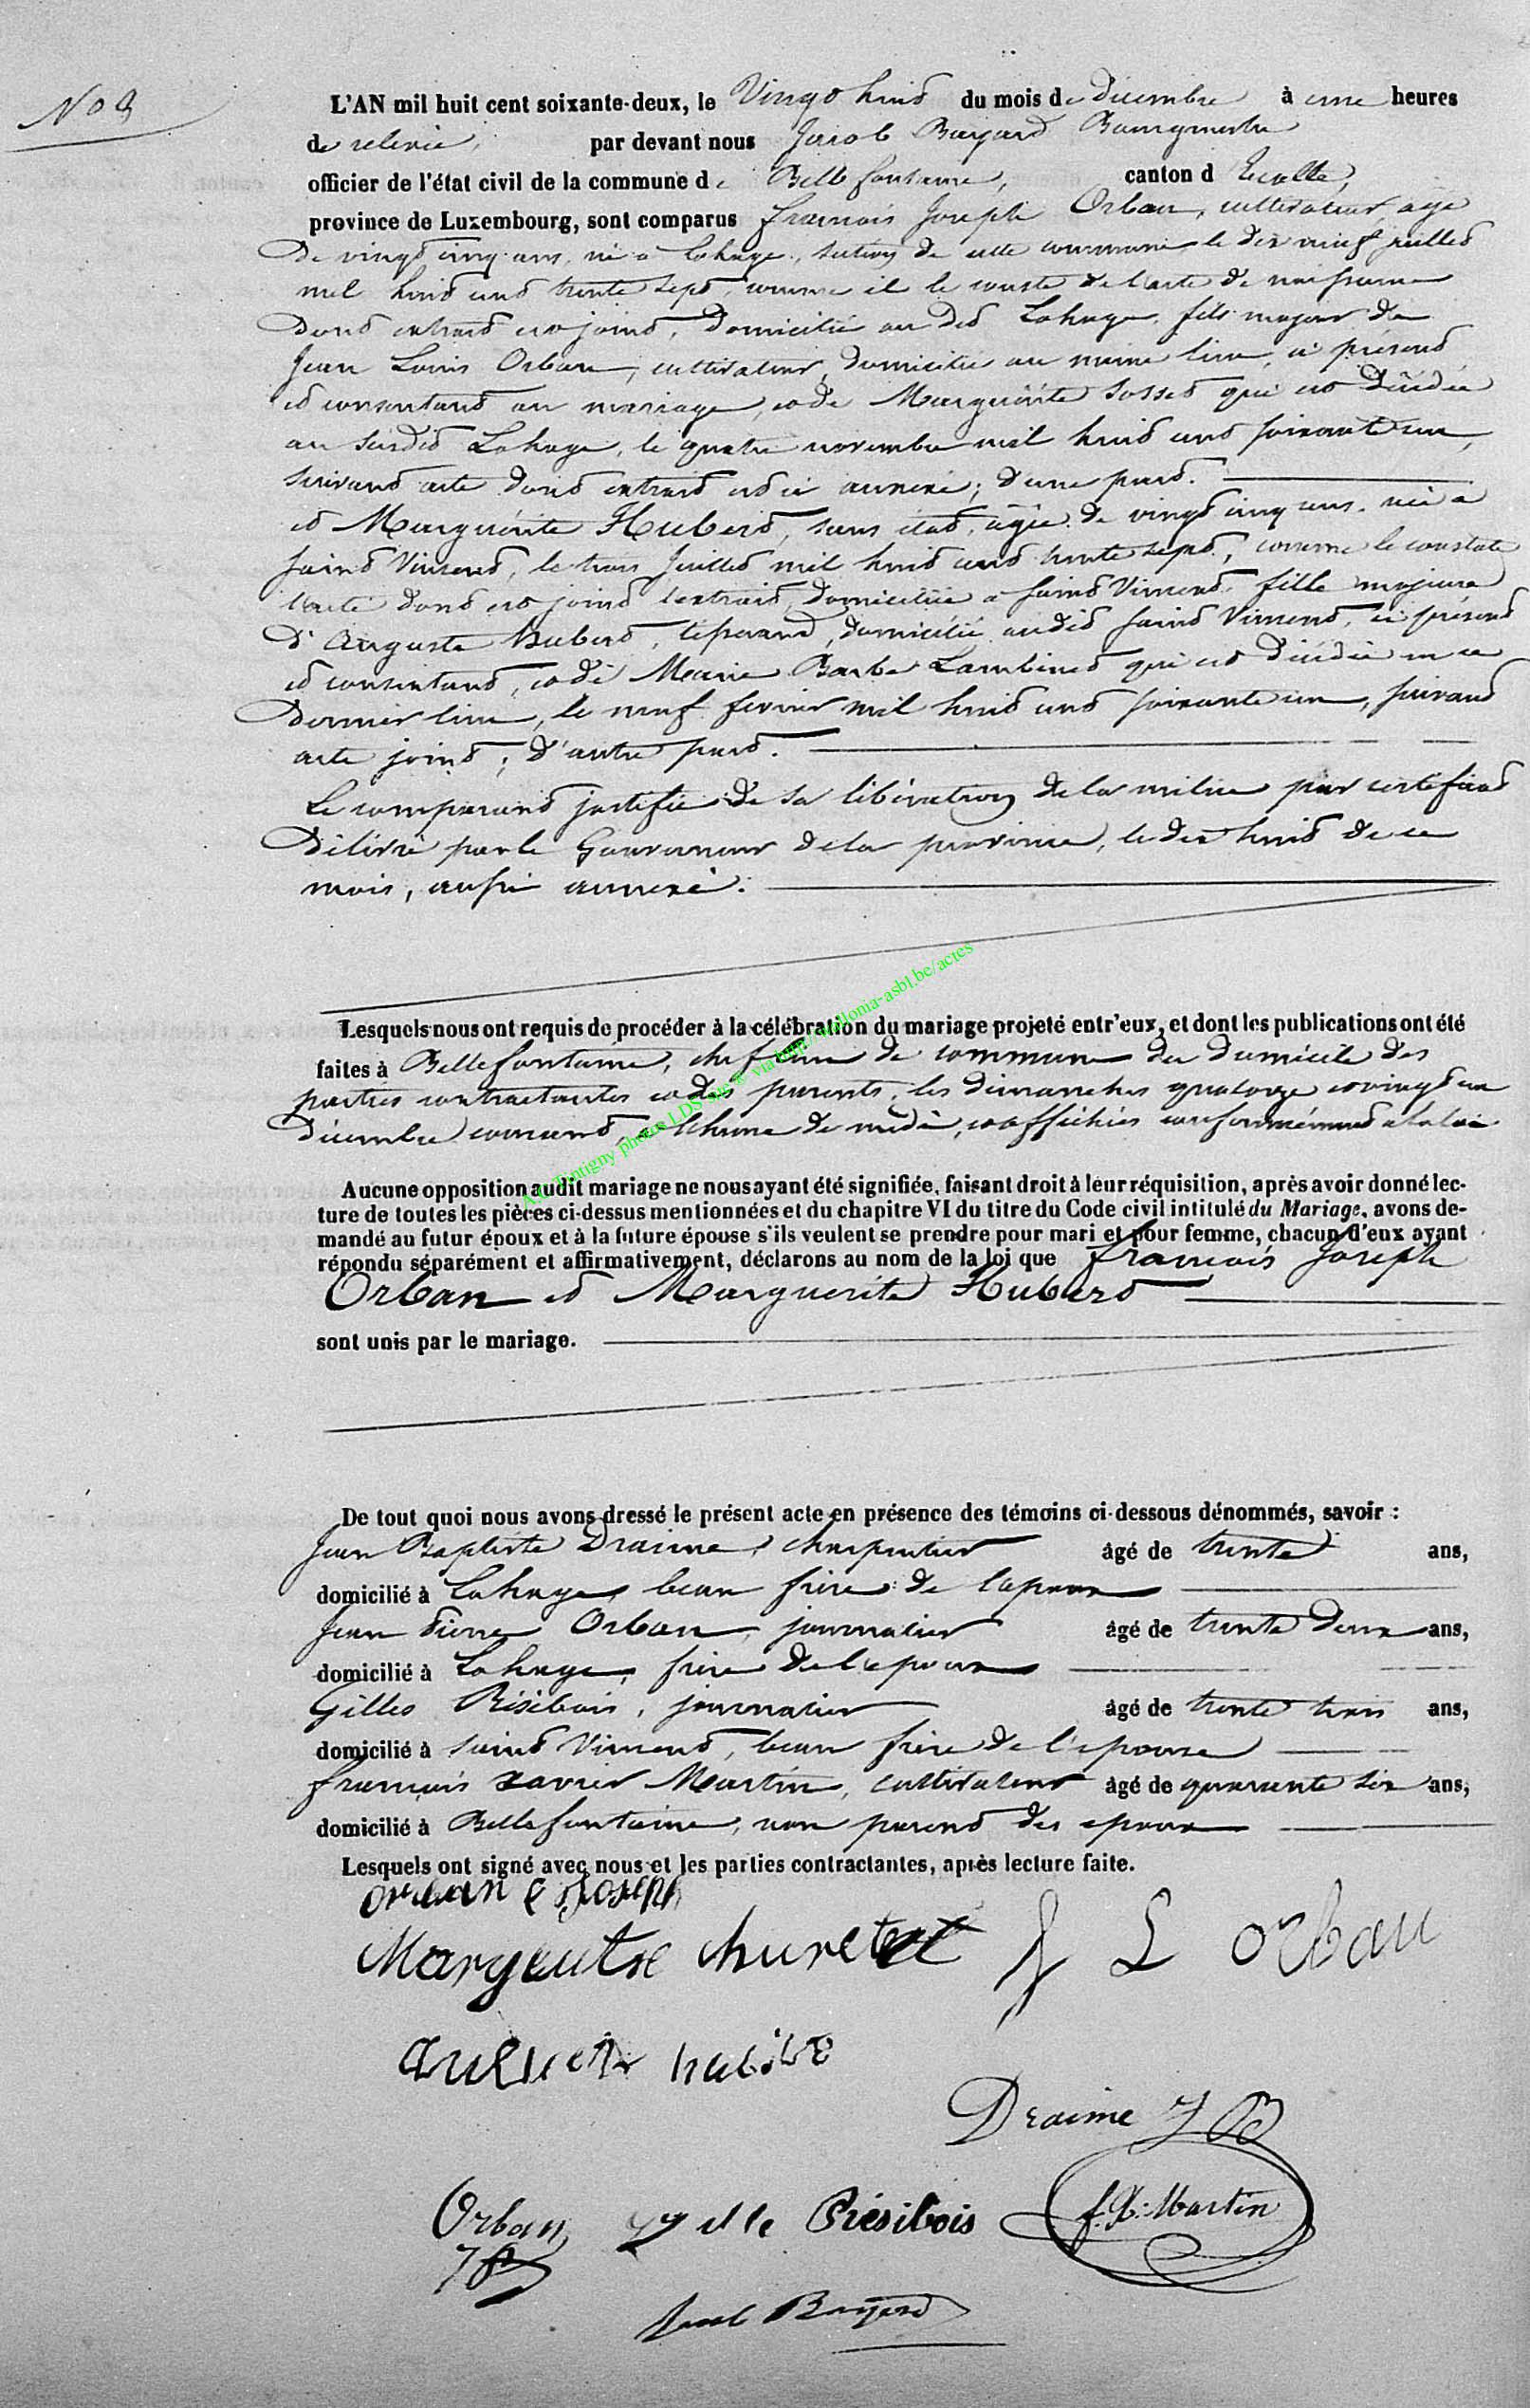 No 9
L'AN mil huit cent soixante-deux, le Vingt huit du mois de décembre à une heures
de relevée, par devant nous Jacob Bayard Bourgmestre
officier de l'état civil de la commune de Bellefontaine, canton d'Etalle,
province de Luxembourg, sont comparus françois Joseph Orban, cultivateur, agé
de vingt cinq ans, né à Lahage, section de cette commune le dix neuf juillet
mil huit cent trente sept, comme il le conste de l'acte de naissance
dont extrait est joint, domicilié au dit Lahage, fils majeur de
Jean Louis Orban, cultivateur, domicilié au même lieu, ci présent
et consentant au mariage, et de Marguérite Sosset qui est décédée
au susdit Lahage, le quatre novembre mil huit cent soixante un,
suivant acte dont extrait est ci annexé; d'une part.
et Marguérite Hubert, sans état, âgée de vingt cinq ans, née à
Saint Vincent, le trois Juillet mil huit cent trente sept, comme le constate
l'acte dont est joint l'extrait, domiciliée à Saint Vincent, fille majeure
d'Auguste Hubert, tisserand, domicilié audit Saint Vincent, ci présent
et consentant, et de Marie Barbe Lambinet qui est décédée en ce
dernier lieu, le neuf fevrier mil huit cent soixante un, suivant
acte joint; d'autre part.
Le comparant justifie de sa libération de la milice par certificat
délivré par le Gouverneur de la province, le dix huit de ce
mois, aussi annexé.
Lesquels nous ont requis de procéder à la célébration du mariage projeté entr'eux, et dont les publications ont été
faites à Bellefontaine, chef lieu de commune du domicile des
parties contractantes et des parents, les dimanches quatorze et vingt un
décembre courant, à l'heure de midi, et affichées conformément à la loi
A.C. Tintigny photos LDS sur @ via http://wallonia-asbl.be/actes
Aucune opposition audit mariage ne nous ayant été signifiée, faisant droit à leur réquisition, après avoir donné lec-
ture de toutes les pièces ci-dessus mentionnées et du chapitre VI du titre du Code civil intitulé du Mariage, avons de-
mandé au futur époux et à la future épouse s'ils veulent se prendre pour mari et pour femme, chacun d'eux ayant
répondu séparément et affirmativement, déclarons au nom de la loi que françois Joseph
Orban et Marguerite Hubert
sont unis par le mariage.
De tout quoi nous avons dressé le présent acte en présence des témoins ci-dessous dénommés, savoir :
Jean Baptiste Draime, charpentier âgé de trente ans,
domicilié à Lahage, beau frère de l'époux
Jean Pierre Orban, journalier âgé de trente deux ans,
domicilié à Lahage, frère de l'époux
Gilles Résibois, journalier âgé de trente trois ans,
domicilié à Saint Vincent, beau frère de l'épouse
François Xavier Martin, cultivateur âgé de quarante six ans,
domicilié à Bellefontaine, non parent des époux
Lesquels ont signé avec nous et les parties contractantes, après lecture faite.
orban Joseph
J L orban
Draime J B
Orban
Résibois
f. X. Martin
JP
Jacob Bayard